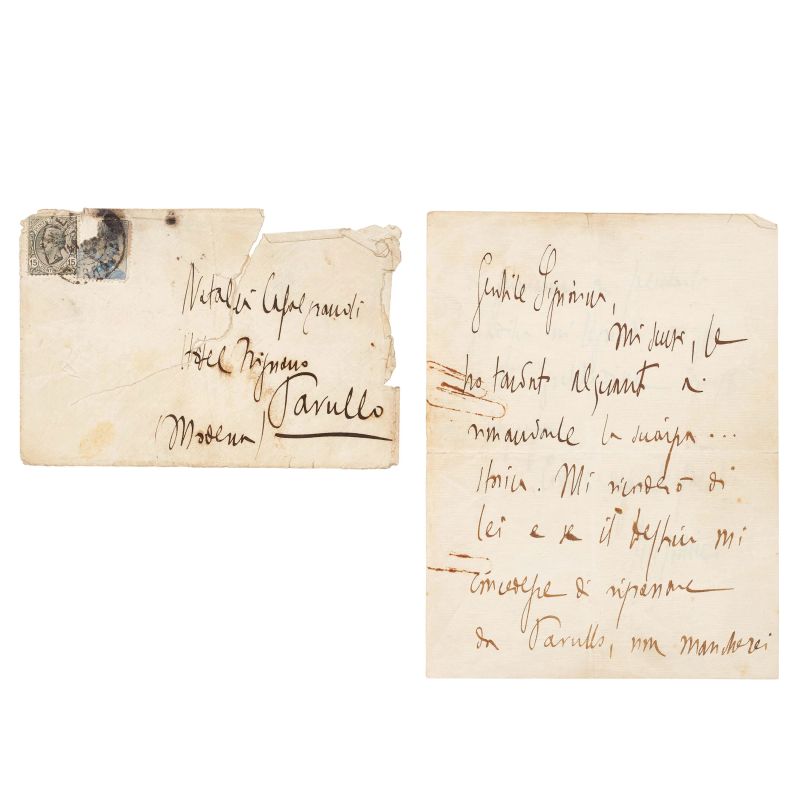 15 15
Natalia Casalgrandi
Hotel
Pavullo
(Modena)
Gentile Signorina,
Mi scusi, se
ho tardato alquanto a
rimandarle la sciarpa...
storica. Mi ricorderò di
lei e se il destino mi
concedesse di ripassare
da Pavullo, non mancherei